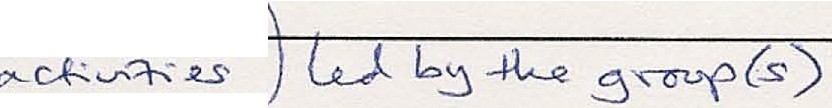 activities) led by the group(s)